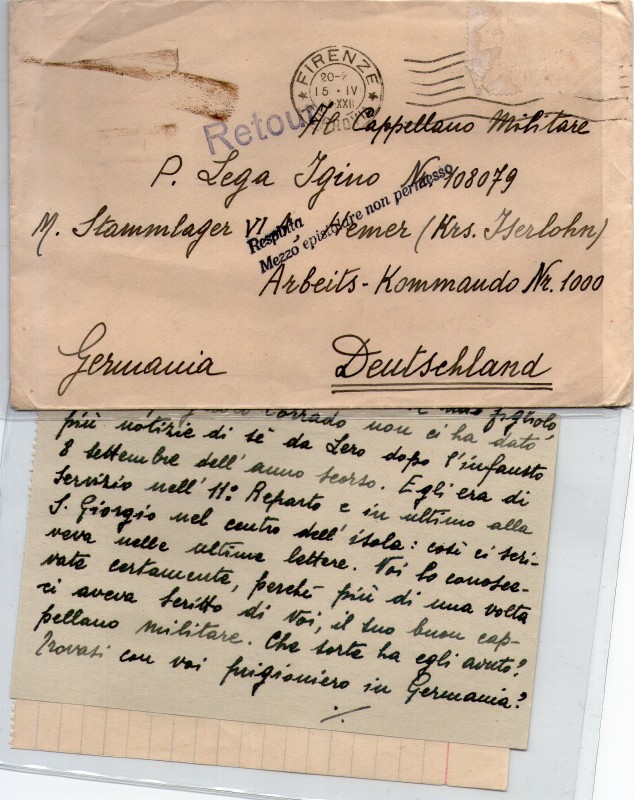 FIRENZE
20-2
15 · IV
XXII
Retour
Al Cappellano Militare
P. Lega Igino Nr. 108079
M. Stammlager VI A Hemer (Krs. Iserlohn)
Respinta
Mezzo epistolare non permesso
Arbeits-Kommando Nr. 1000
Germania Deutschland
Corrado non ci ha dato
più notizie di sè da Lero dopo l'infausto
8 settembre dell'anno scorso. Egli era di
servizio nell'11º Reparto e in ultimo alla
S. Giorgio nel centro dell'isola: così ci scri-
veva nelle ultime lettere. Voi lo conosce-
vate certamente, perchè più di una volta
ci aveva scritto di Voi, il suo buon cap-
pellano militare. Che sorte ha egli avuto?
Trovasi con voi prigioniero in Germania?
./.